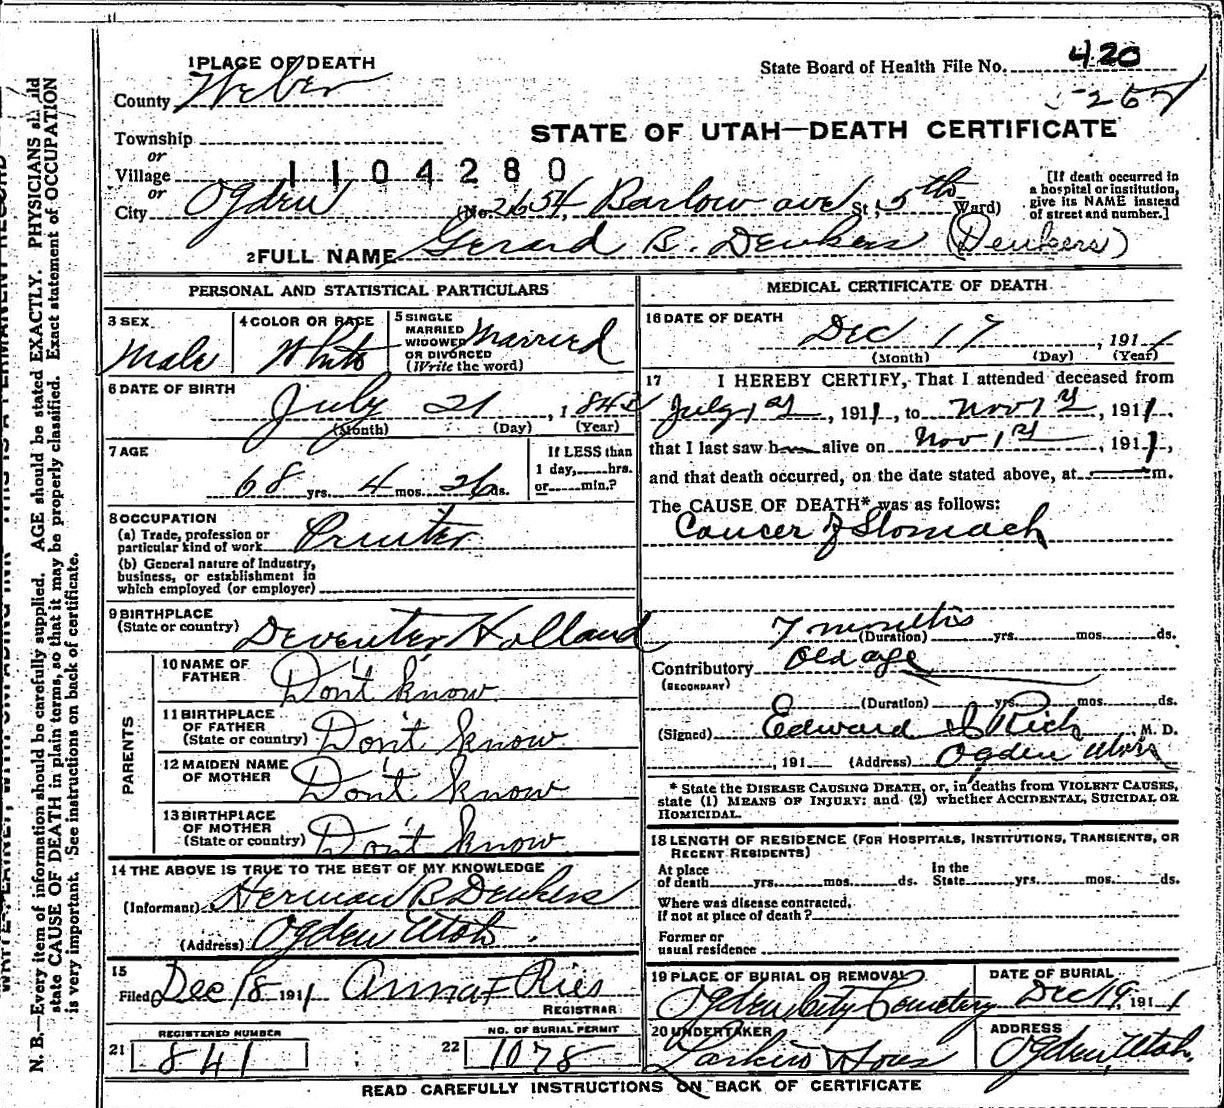 1 PLACE OF DEATH
State Board of Health File No. 420
County Weber
STATE OF UTAH—DEATH CERTIFICATE
Township
or
Village 1104280
or
City Ogden (No. 2654, Barlow ave St., 5th Ward)
[If death occurred in
a hospital or institution,
give its NAME instead
of street and number.]
2 FULL NAME Gerard B. Denkers (Denkers)
PERSONAL AND STATISTICAL PARTICULARS
3 SEX
Male
4 COLOR OR RACE
White
5 SINGLE
MARRIED
WIDOWED
OR DIVORCED
(Write the word)
Married
6 DATE OF BIRTH
July 21, 1843
(Month) (Day) (Year)
7 AGE
68 yrs. 4 mos. 26 ds.
If LESS than
1 day,......hrs.
or......min.?
8 OCCUPATION
(a) Trade, profession or
particular kind of work Printer
(b) General nature of Industry,
business, or establishment in
which employed (or employer)
9 BIRTHPLACE
(State or country) Deventer Holland
PARENTS
10 NAME OF
FATHER Don't know
11 BIRTHPLACE
OF FATHER
(State or country) Don't know
12 MAIDEN NAME
OF MOTHER Don't know
13 BIRTHPLACE
OF MOTHER
(State or country) Don't know
14 THE ABOVE IS TRUE TO THE BEST OF MY KNOWLEDGE
(Informant) Herman B Denkers
(Address) Ogden Utah.
15
Filed Dec 18 1911 Anna F Ries
REGISTRAR
REGISTERED NUMBER
21 841
NO. OF BURIAL PERMIT
22 1078
MEDICAL CERTIFICATE OF DEATH
16 DATE OF DEATH
Dec 17, 1911
(Month) (Day) (Year)
17 I HEREBY CERTIFY, That I attended deceased from
July 1st, 1911, to Nov 1st, 1911,
that I last saw him alive on Nov 1st, 1911,
and that death occurred, on the date stated above, at m.
The CAUSE OF DEATH* was as follows:
Cancer of Stomach
7 months
(Duration) yrs. mos. ds.
Contributory Old age
(SECONDARY)
(Duration) yrs. mos. ds.
(Signed) Edward I Rich, M. D.
, 191 (Address) Ogden Utah
* State the DISEASE CAUSING DEATH, or, in deaths from VIOLENT CAUSES,
state (1) MEANS OF INJURY; and (2) whether ACCIDENTAL, SUICIDAL OR
HOMICIDAL.
18 LENGTH OF RESIDENCE (FOR HOSPITALS, INSTITUTIONS, TRANSIENTS, OR
RECENT RESIDENTS)
At place
of death yrs. mos. ds.
In the
State yrs. mos. ds.
Where was disease contracted,
if not at place of death?
Former or
usual residence
19 PLACE OF BURIAL OR REMOVAL
Ogden City Cemetery
DATE OF BURIAL
Dec 19, 1911
20 UNDERTAKER
Larkin & Sons
ADDRESS
Ogden, Utah.
READ CAREFULLY INSTRUCTIONS ON BACK OF CERTIFICATE
N. B.—Every item of information should be carefully supplied. AGE should be stated EXACTLY. PHYSICIANS should
state CAUSE OF DEATH in plain terms, so that it may be properly classified. Exact statement of OCCUPATION
is very important. See instructions on back of certificate.